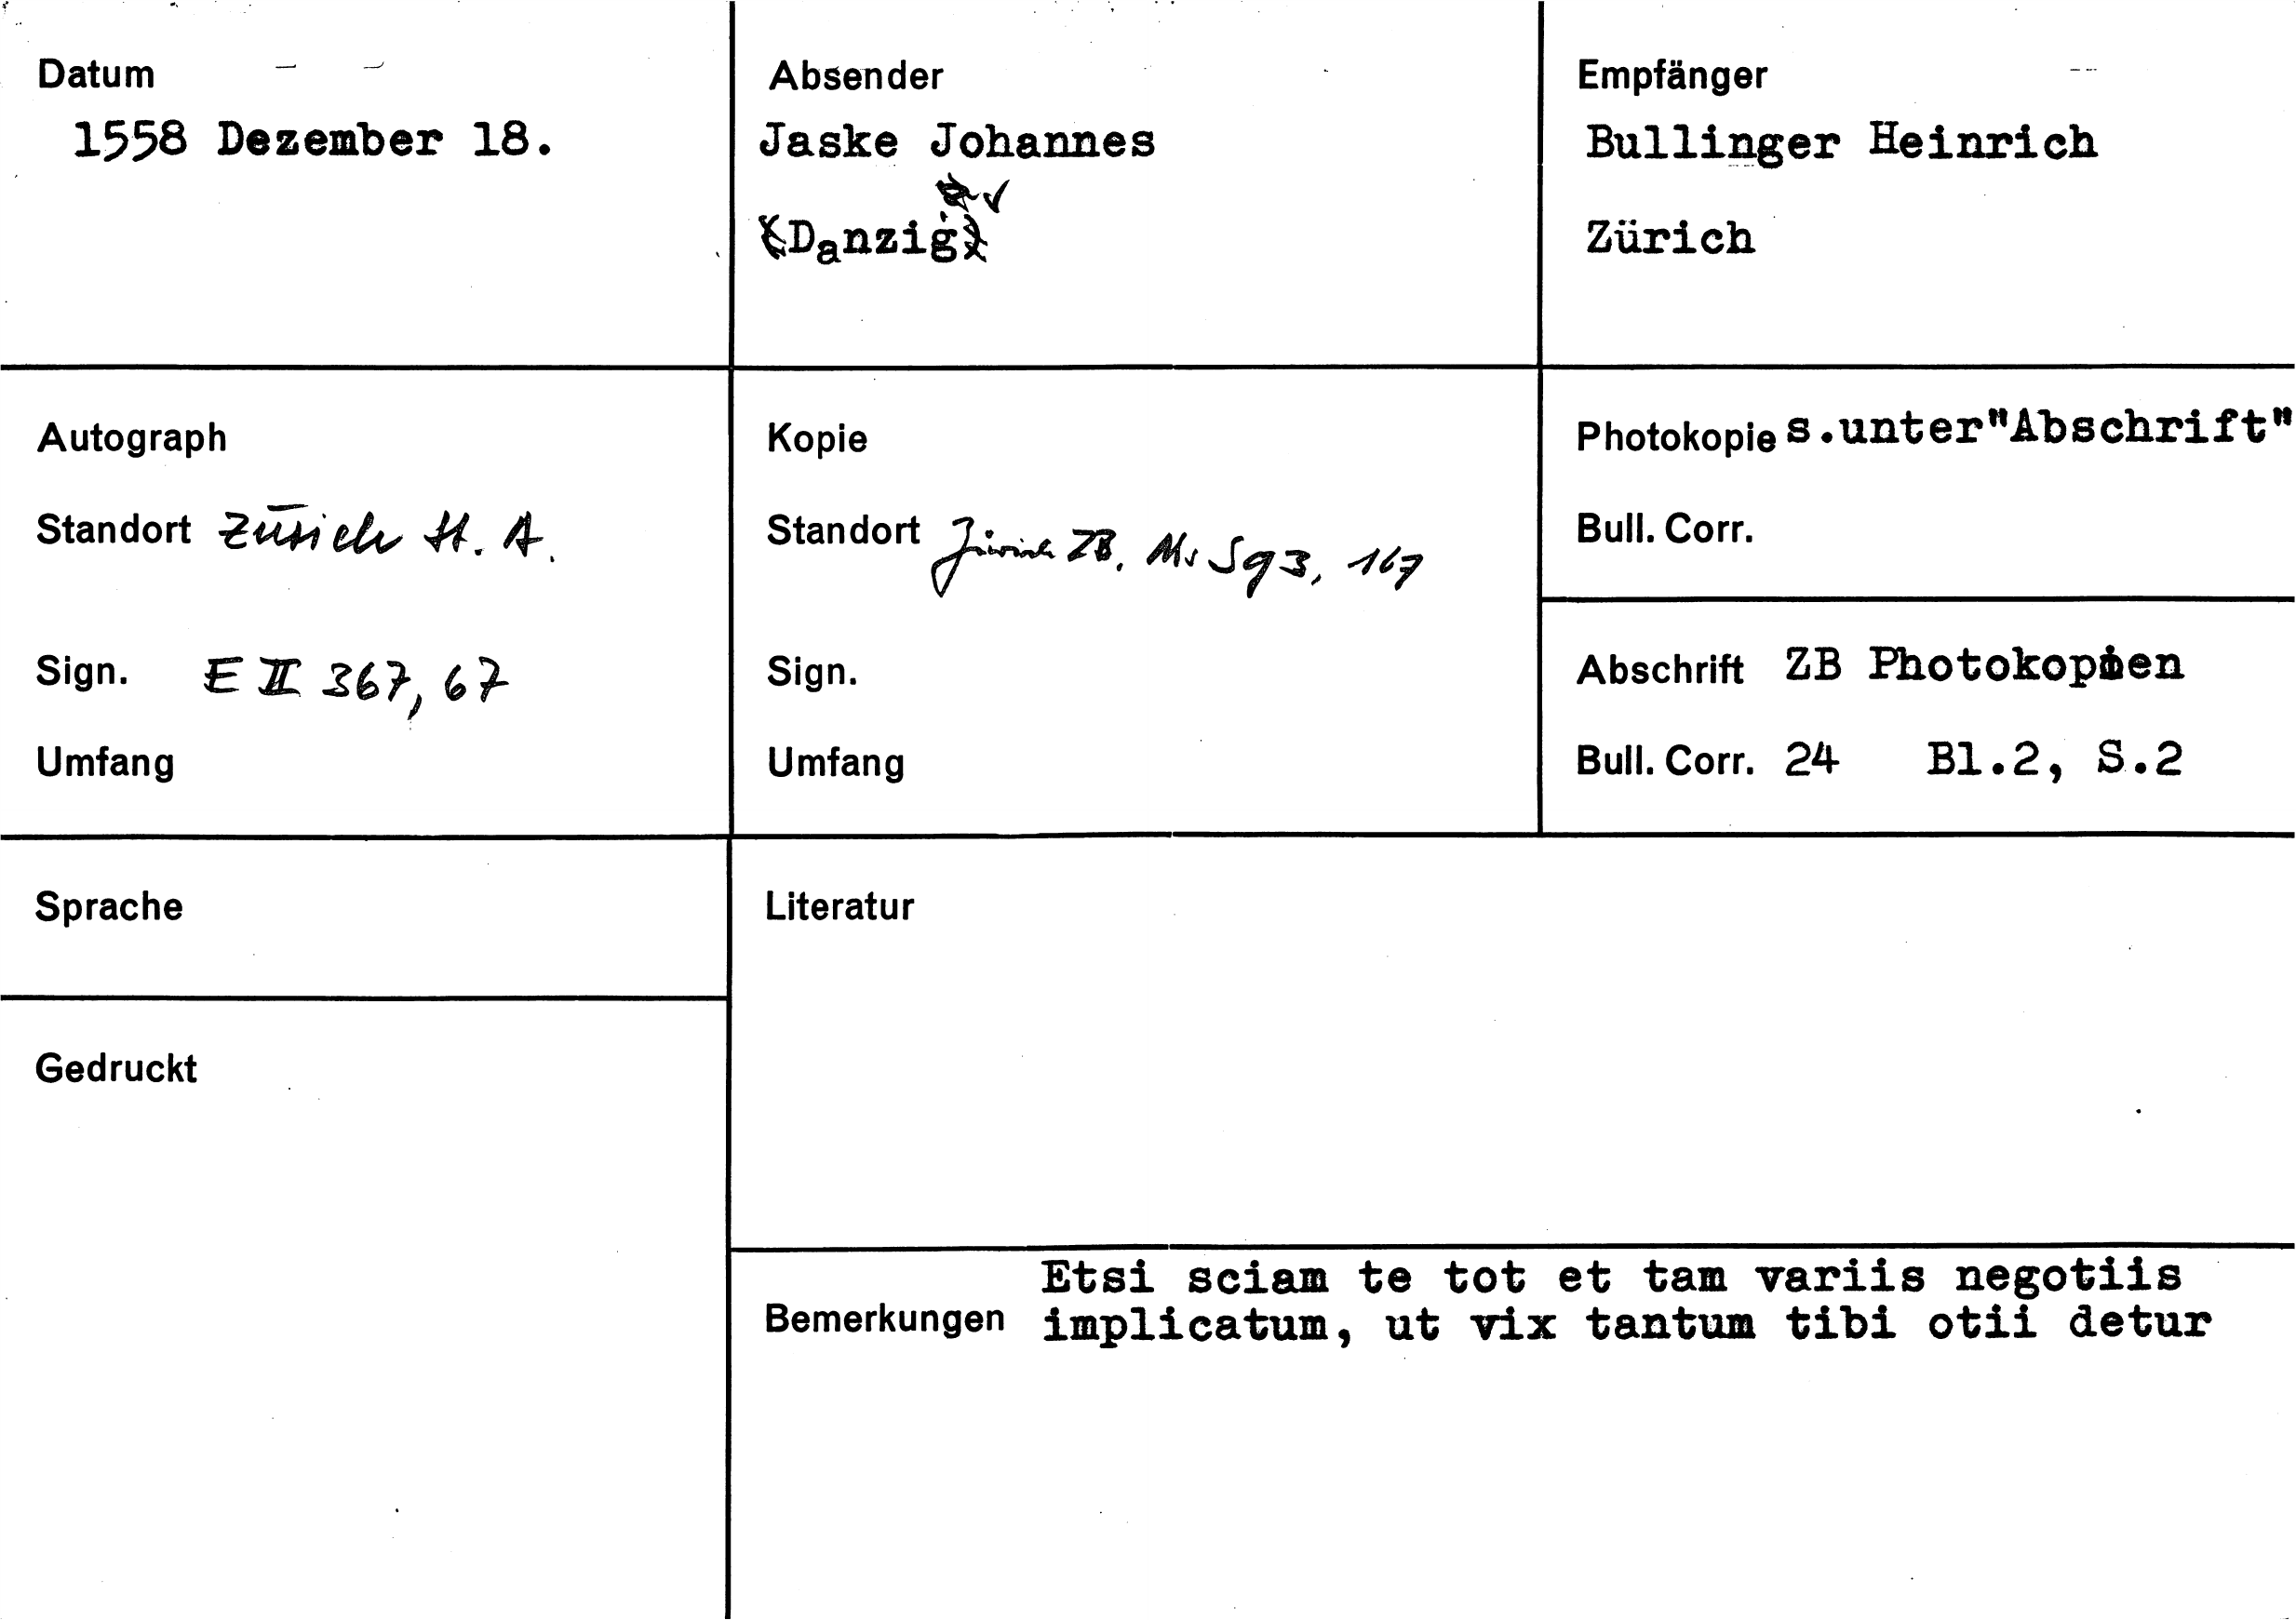 Datum
1558 Dezember 18.
Absender
Jaske Johannes
(Danzig)
Empfänger
Bullinger Heinrich
Zürich
Autograph
Standort Zürich St. A.
Sign. E II 367, 67
Umfang
Kopie
Standort Zürich ZB, Ms S 93, 167
Sign.
Umfang
Photokopie s.unter"Abschrift"
Bull. Corr.
Abschrift ZB Photokopien
Bull. Corr. 24 Bl.2, S.2
Sprache
Gedruckt
Literatur
Bemerkungen Etsi sciam te tot et tam variis negotiis
implicatum, ut vix tantum tibi otii detur